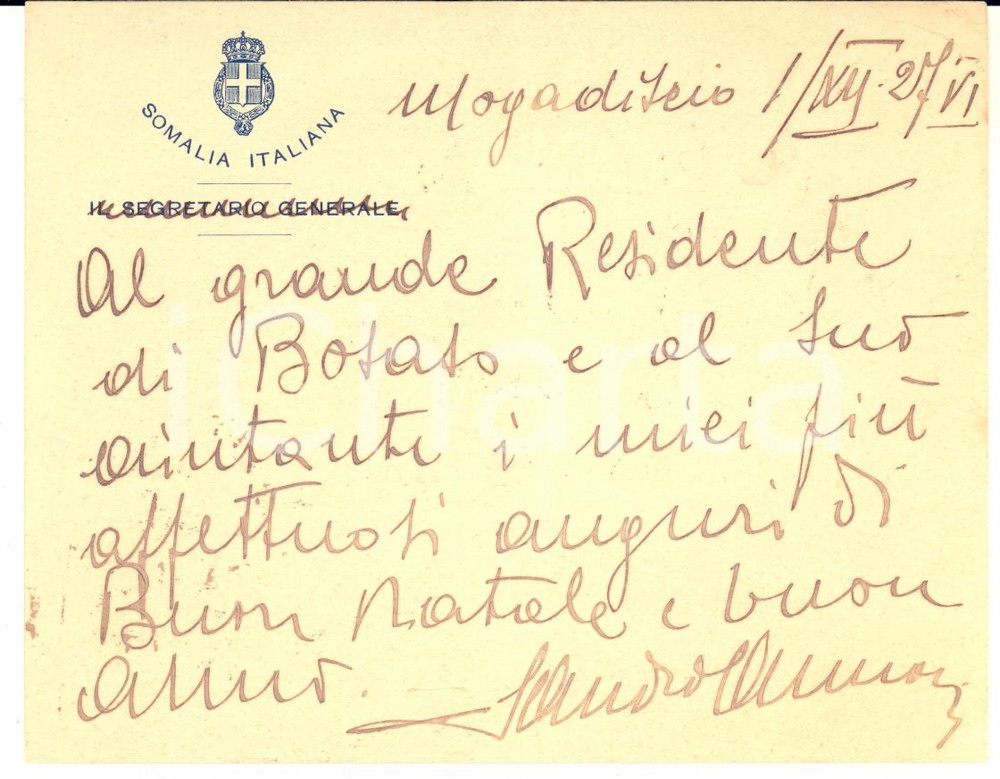 SOMALIA ITALIANA
IL SEGRETARIO GENERALE
Mogadiscio 1/XII.27 VI
Al grande Residente
di Bosaso e al suo
aiutante i miei più
affettuosi auguri di
Buon Natale e buon
anno.
iCharta